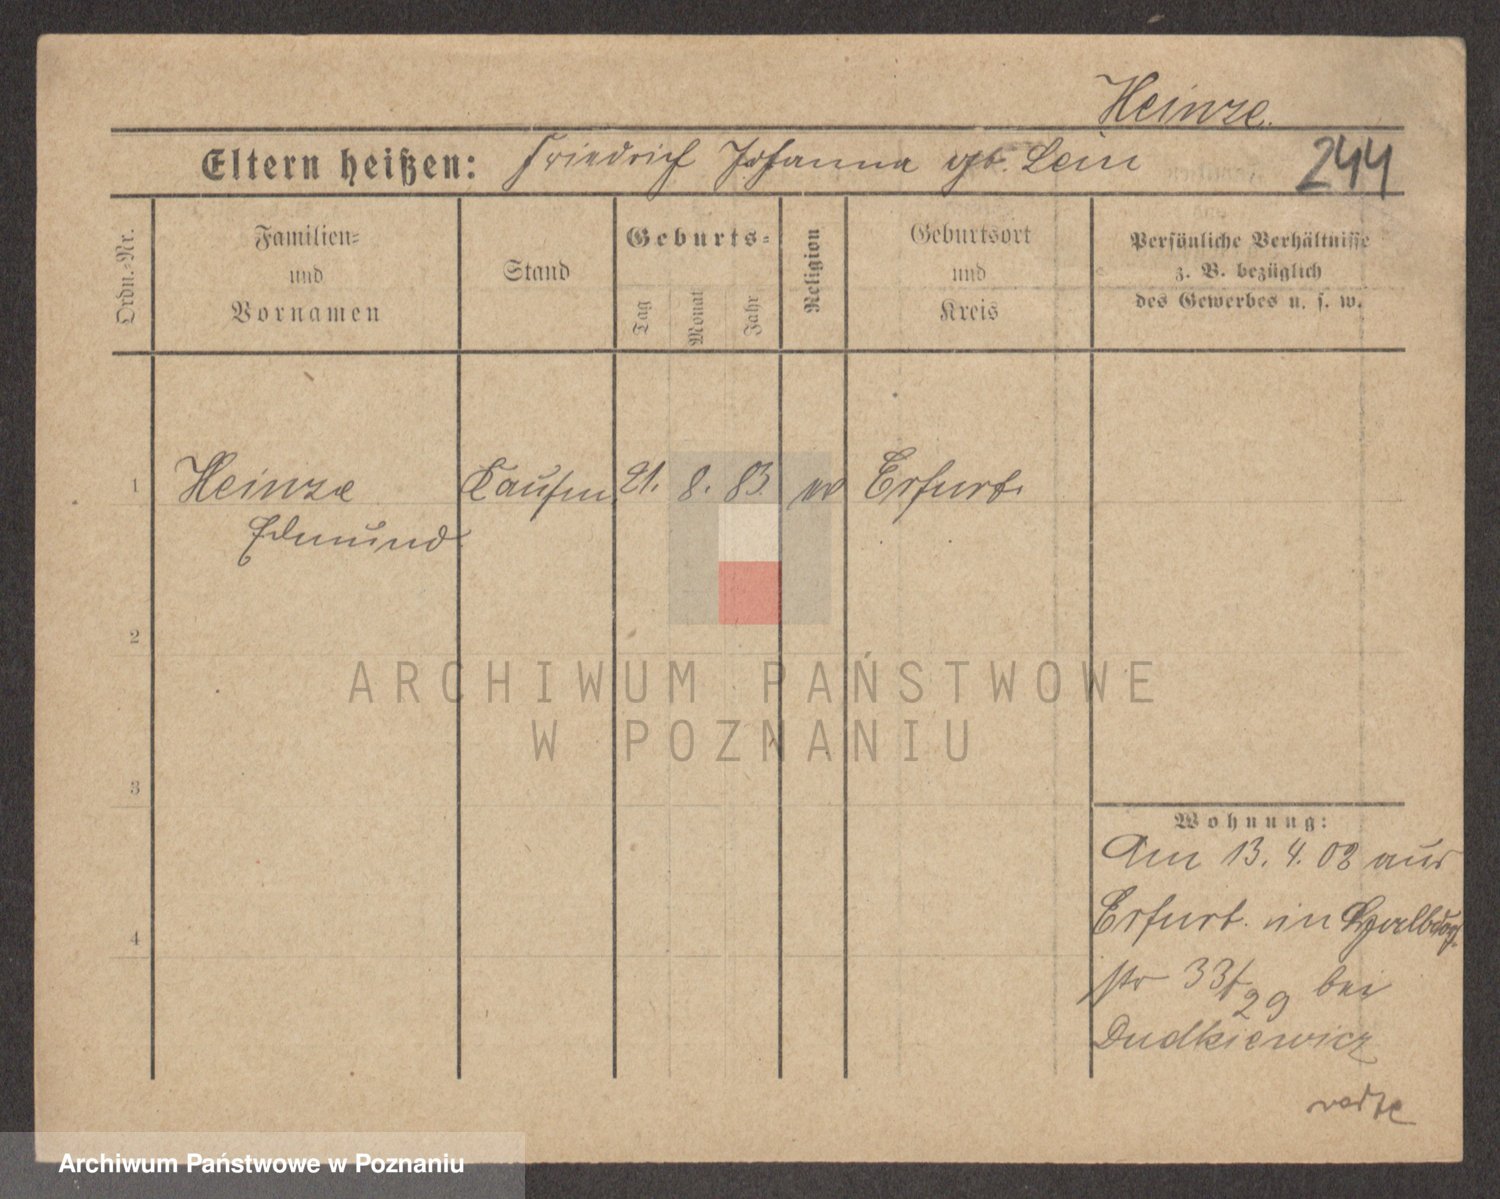 Heinze.
Eltern heißen: Friedrich Johanna gb. Lein 244
Ordn.-Nr.
Familien-
und
Vornamen
Stand
Geburts-
Tag
Monat
Jahr
Religion
Geburtsort
und
Kreis
Persönliche Verhältnisse
z. B. bezüglich
des Gewerbes u. s. w.
1 Heinze Kaufm. 21. 8. 83. ev Erfurt.
Edmund
2
3
4
Wohnung:
Am 13. 4. 08 aus
Erfurt in
str 33/29 bei
Dudkiewicz
ARCHIWUM PAŃSTWOWE
W POZNANIU
Archiwum Państwowe w Poznaniu